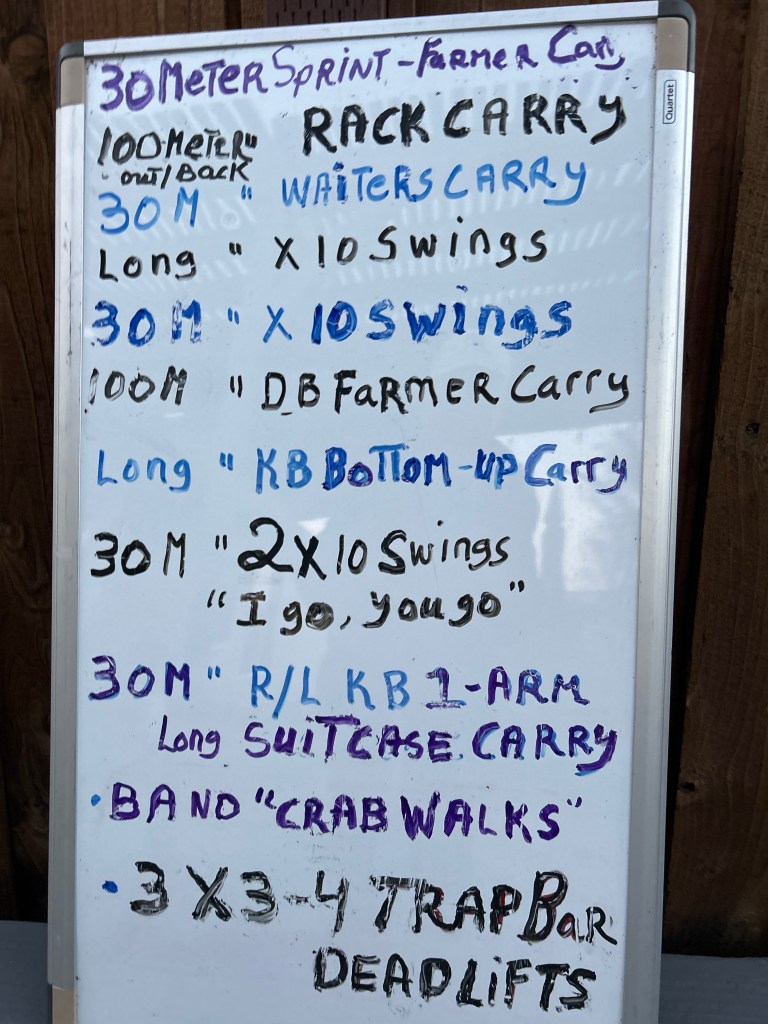 30 MeTeR SPRiNT - FaRmeR Carry
100 MeTeR " RACK CARRY
out/BACK
30 M " WAiTeRS CARRY
Long " X 10 Swings
30 M " X 10 Swings
100M " DB FaRmeR Carry
Long " KB BoTTom-up Carry
30 M " 2 X 10 Swings
"I go, you go"
30 M " R/L KB 1-ARM
Long SuiTCASE CARRY
• BAND "CRAB WALKS"
• 3 X 3-4 TRAP BaR
DEADLiFTS
Quartet